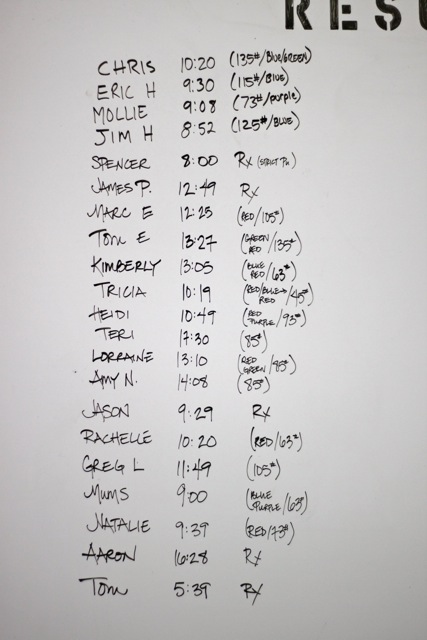 RESU
CHRIS 10:20 (135#/Blue/GREEN)
ERIC H 9:30 (115#/Blue)
MOLLIE 9:08 (73#/purple)
JIM H 8:52 (125#/BLUE)
SPENCER 8:00 Rx (STRICT Pu)
JAMES P. 12:49 Rx
MARC E 12:25 (RED/105#)
Tom E 13:27 (GREEN RED/135#)
KIMBERLY 13:05 (BLUE RED/63#)
TRICIA 10:19 (RED/BLUE→ RED/45#)
HEIDI 10:49 (RED PURPLE/93#)
TERI 17:30 (85#)
LORRAINE 13:10 (RED GREEN/85#)
AMY N. 14:08 (85#)
JASON 9:29 Rx
RACHELLE 10:20 (RED/63#)
GREG L 11:49 (105#)
Mums 9:00 (BLUE PURPLE/63#)
NATALIE 9:39 (RED/73#)
AARON 16:28 Rx
Tom 5:39 Rx